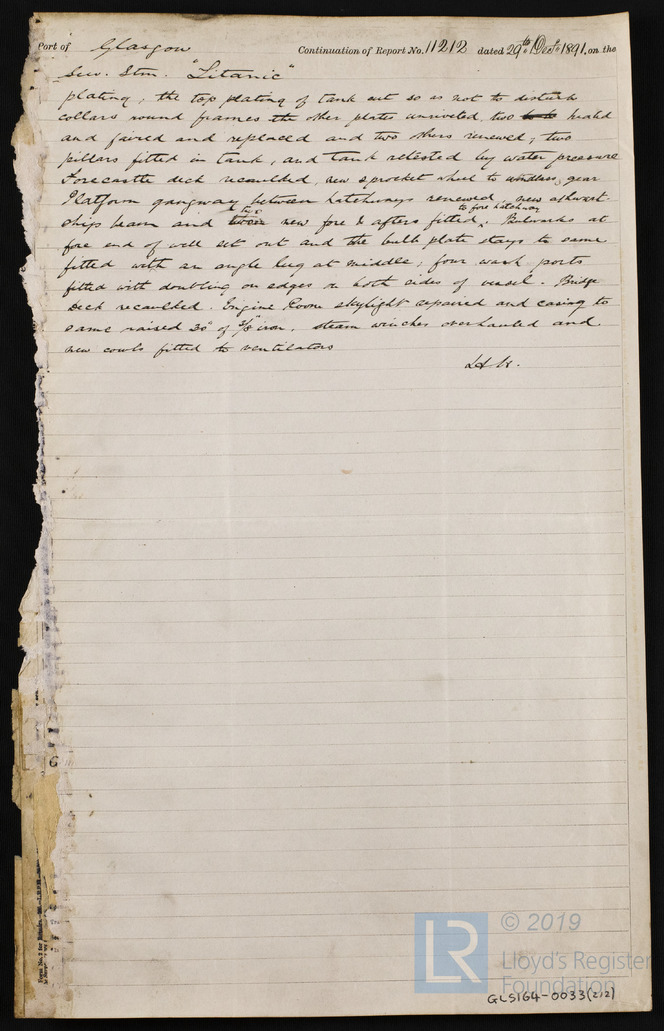 Port of Glasgow Continuation of Report No. 11212 dated 29th Decr 1891, on the
Scw. Stm. "Titanic"
plating, the top plating of tank cut so as not to disturb
collars round frames the other plates unriveted, two heated
and faired and replaced and two others renewed; two
pillars fitted in tank, and tank retested by water pressure
Forecastle deck recaulked, new sprocket wheel to windlass gear
Platform gangway between hatchways renewed, new athwart
ship beam and new fore & afters fitted to fore hatchway. Bulwarks at
fore end of well set out and the bulb plate stays to same
fitted with an angle lug at middle; four wash ports
fitted with doubling on edges on both sides of vessel. Bridge
Deck recaulked. Engine Room skylight repaired and casing to
same raised 30" of 3/8 iron, steam winches overhauled and
new cowls fitted to ventilators
© 2019
LR
Lloyd's Register
Foundation
GLS164-0033(2/2)